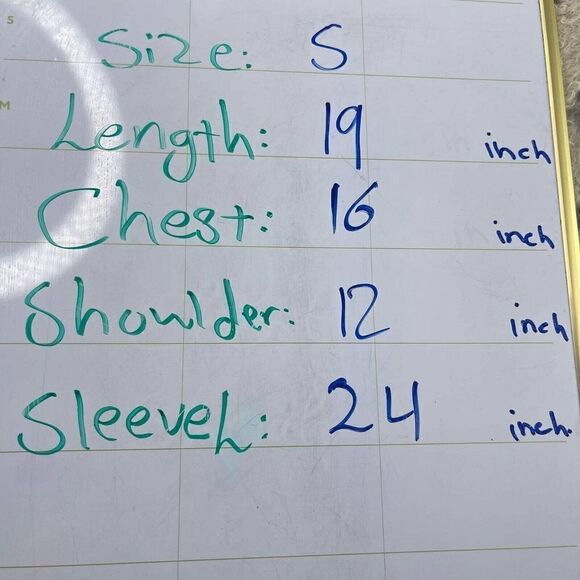 S
Size: S
M
Length: 19 inch
Chest: 16 inch
Shoulder: 12 inch
Sleeveh: 24 inch.